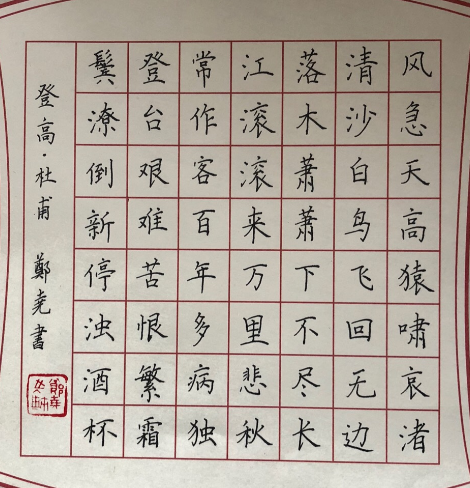 风急天高猿啸哀渚
清沙白鸟飞回无边
落木萧萧下不尽长
江滚滚来万里悲秋
常作客百年多病独
登台艰难苦恨繁霜
鬓潦倒新停浊酒杯
登高·杜甫 鄭尧書